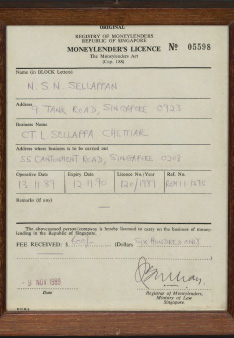 ORIGINAL
REGISTRY OF MONEYLENDERS
REPUBLIC OF SINGAPORE
MONEYLENDER'S LICENCE Nº 05598
The Moneylenders Act
(Cap. 188)
Name (in BLOCK Letters)
N. S. N. SELLAPPAN
Address
7 TANK ROAD, SINGAPORE 0923
Business Name
CT. L. SELLAPPA CHETTIAR
Address where business is to be carried out
55 CANTONMENT ROAD, SINGAPORE 0208
Operative Date Expiry Date Licence No./Year Ref. No.
13.11.89 12.11.90 120/1989
Remarks (if any)
The abovenamed person/company is hereby licensed to carry on the business of money-
lending in the Republic of Singapore.
FEE RECEIVED: $ 600/- (Dollars SIX HUNDRED ONLY
9 NOV 1989
Date
Registrar of Moneylenders,
Ministry of Law
Singapore.